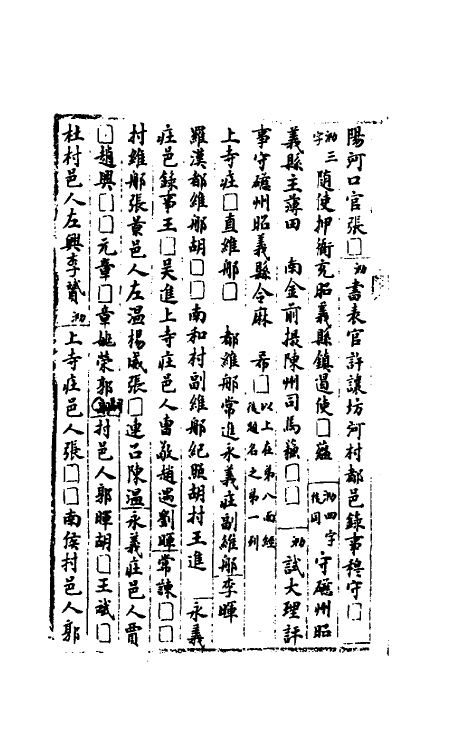 陽河口官張□泐書表官許讓坊河村都邑錄事穆守□
泐三字隨使押衙充昭義縣鎮遏使□蘊泐四字後同守磁州昭
義縣主薄田 南金前攝陳州司馬蘊□□ 泐試大理評
事守磁州昭義縣令麻 希□以上在第八面經後題名之第一列
上寺疰□直維那□ 都維那常進永義莊副維那李暉
羅漢都維那胡□□南和村副維那紀顯胡村王進 永義
疰邑錄事王□吳進上寺疰邑人曹敬趙遇劉暉常諫□□
村維那張萱邑人左温楊威張□連召陳温永義疰邑人賈
□趙興□□元章□章姚榮郭村邑人郭暉胡□王斌□
杜村邑人左興李贇泐上寺疰邑人張□□南侯村邑人郭